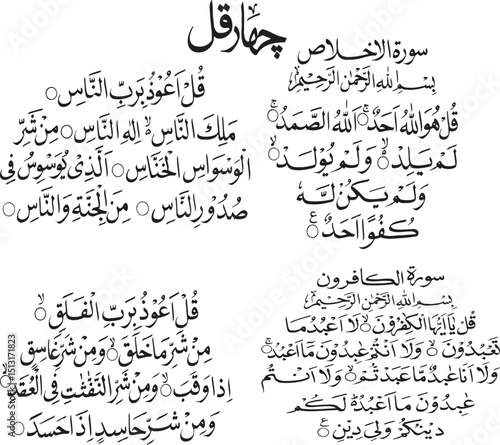 چہار قل
سورة الاخلاص
بِسْمِ اللهِ الرَّحْمٰنِ الرَّحِيْمِ
قُلْ هُوَ اللّٰهُ اَحَدٌ ۚ○ اَللّٰهُ الصَّمَدُ ۚ○
لَمْ يَلِدْ ۙ○ وَلَمْ يُوْلَدْ ۙ○
وَلَمْ يَكُنْ لَّهٗ
كُفُوًا اَحَدٌ ○ع
قُلْ اَعُوْذُ بِرَبِّ النَّاسِ ○
مَلِكِ النَّاسِ ۙ○ اِلٰهِ النَّاسِ ○ مِنْ شَرِّ
الْوَسْوَاسِ الْخَنَّاسِ ○ الَّذِىْ يُوَسْوِسُ فِىْ
صُدُوْرِ النَّاسِ ○ مِنَ الْجِنَّةِ وَالنَّاسِ ○
سورة الكافرون
بِسْمِ اللهِ الرَّحْمٰنِ الرَّحِيْمِ
قُلْ يٰۤاَيُّهَا الْكٰفِرُوْنَ ۙ○ لَاۤ اَعْبُدُ مَا
تَعْبُدُوْنَ ۙ○ وَلَاۤ اَنْتُمْ عٰبِدُوْنَ مَاۤ اَعْبُدُ ۚ○
وَلَاۤ اَنَا عَابِدٌ مَّا عَبَدْتُّمْ ۙ○ وَلَاۤ اَنْتُمْ
عٰبِدُوْنَ مَاۤ اَعْبُدُ ○ لَكُمْ
دِيْنُكُمْ وَلِىَ دِيْنِ ○ع
قُلْ اَعُوْذُ بِرَبِّ الْفَلَقِ ۙ○
مِنْ شَرِّ مَا خَلَقَ ۙ○ وَمِنْ شَرِّ غَاسِقٍ
اِذَا وَقَبَ ۙ○ وَمِنْ شَرِّ النَّفّٰثٰتِ فِى الْعُقَدِ
وَمِنْ شَرِّ حَاسِدٍ اِذَا حَسَدَ ○
Adobe Stock
#1513171823